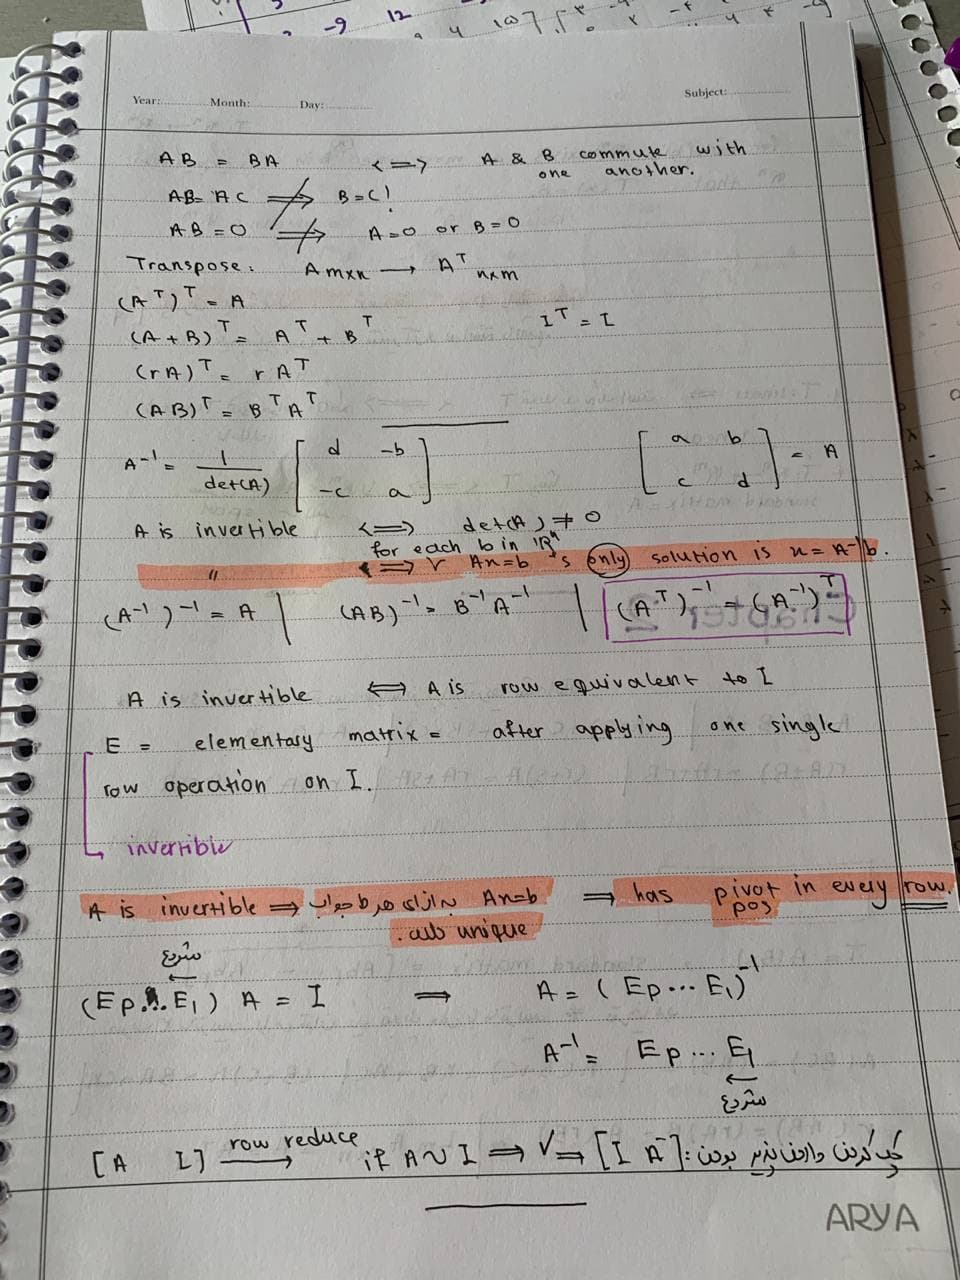 -9 12
Year: Month: Day: Subject:
AB = BA <=> A & B commute with one another.
AB = AC ⇏ B = C!
AB = 0 ⇏ A = 0 or B = 0
Transpose: Am×n → A^T n×m
(A^T)^T = A
(A + B)^T = A^T + B^T I^T = I
(rA)^T = rA^T
(AB)^T = B^T A^T
A^-1 = 1/det(A) [d -b; -c a] [a b; c d] = A
A is invertible <=> det(A) ≠ 0
for each b in ℝ^n
" <=> Ax=b 's only solution is x = A^-1 b.
(A^-1)^-1 = A | (AB)^-1 = B^-1 A^-1 | (A^T)^-1 = (A^-1)^T
A is invertible <=> A is row equivalent to I
E = elementary matrix = after applying one single
row operation on I.
invertible
A is invertible ⇒ به ازای هر b جواب Ax=b ⇒ has pivot in every row.
unique است. pos
شروع
←
(Ep ... E1) A = I ⇒ A = (Ep ... E1)^-1
A^-1 = Ep ... E1
←
شروع
[A I] row reduce → if A ~ I ⇒ [I A^-] : چک کردن وارون پذیر بودن
ARYA